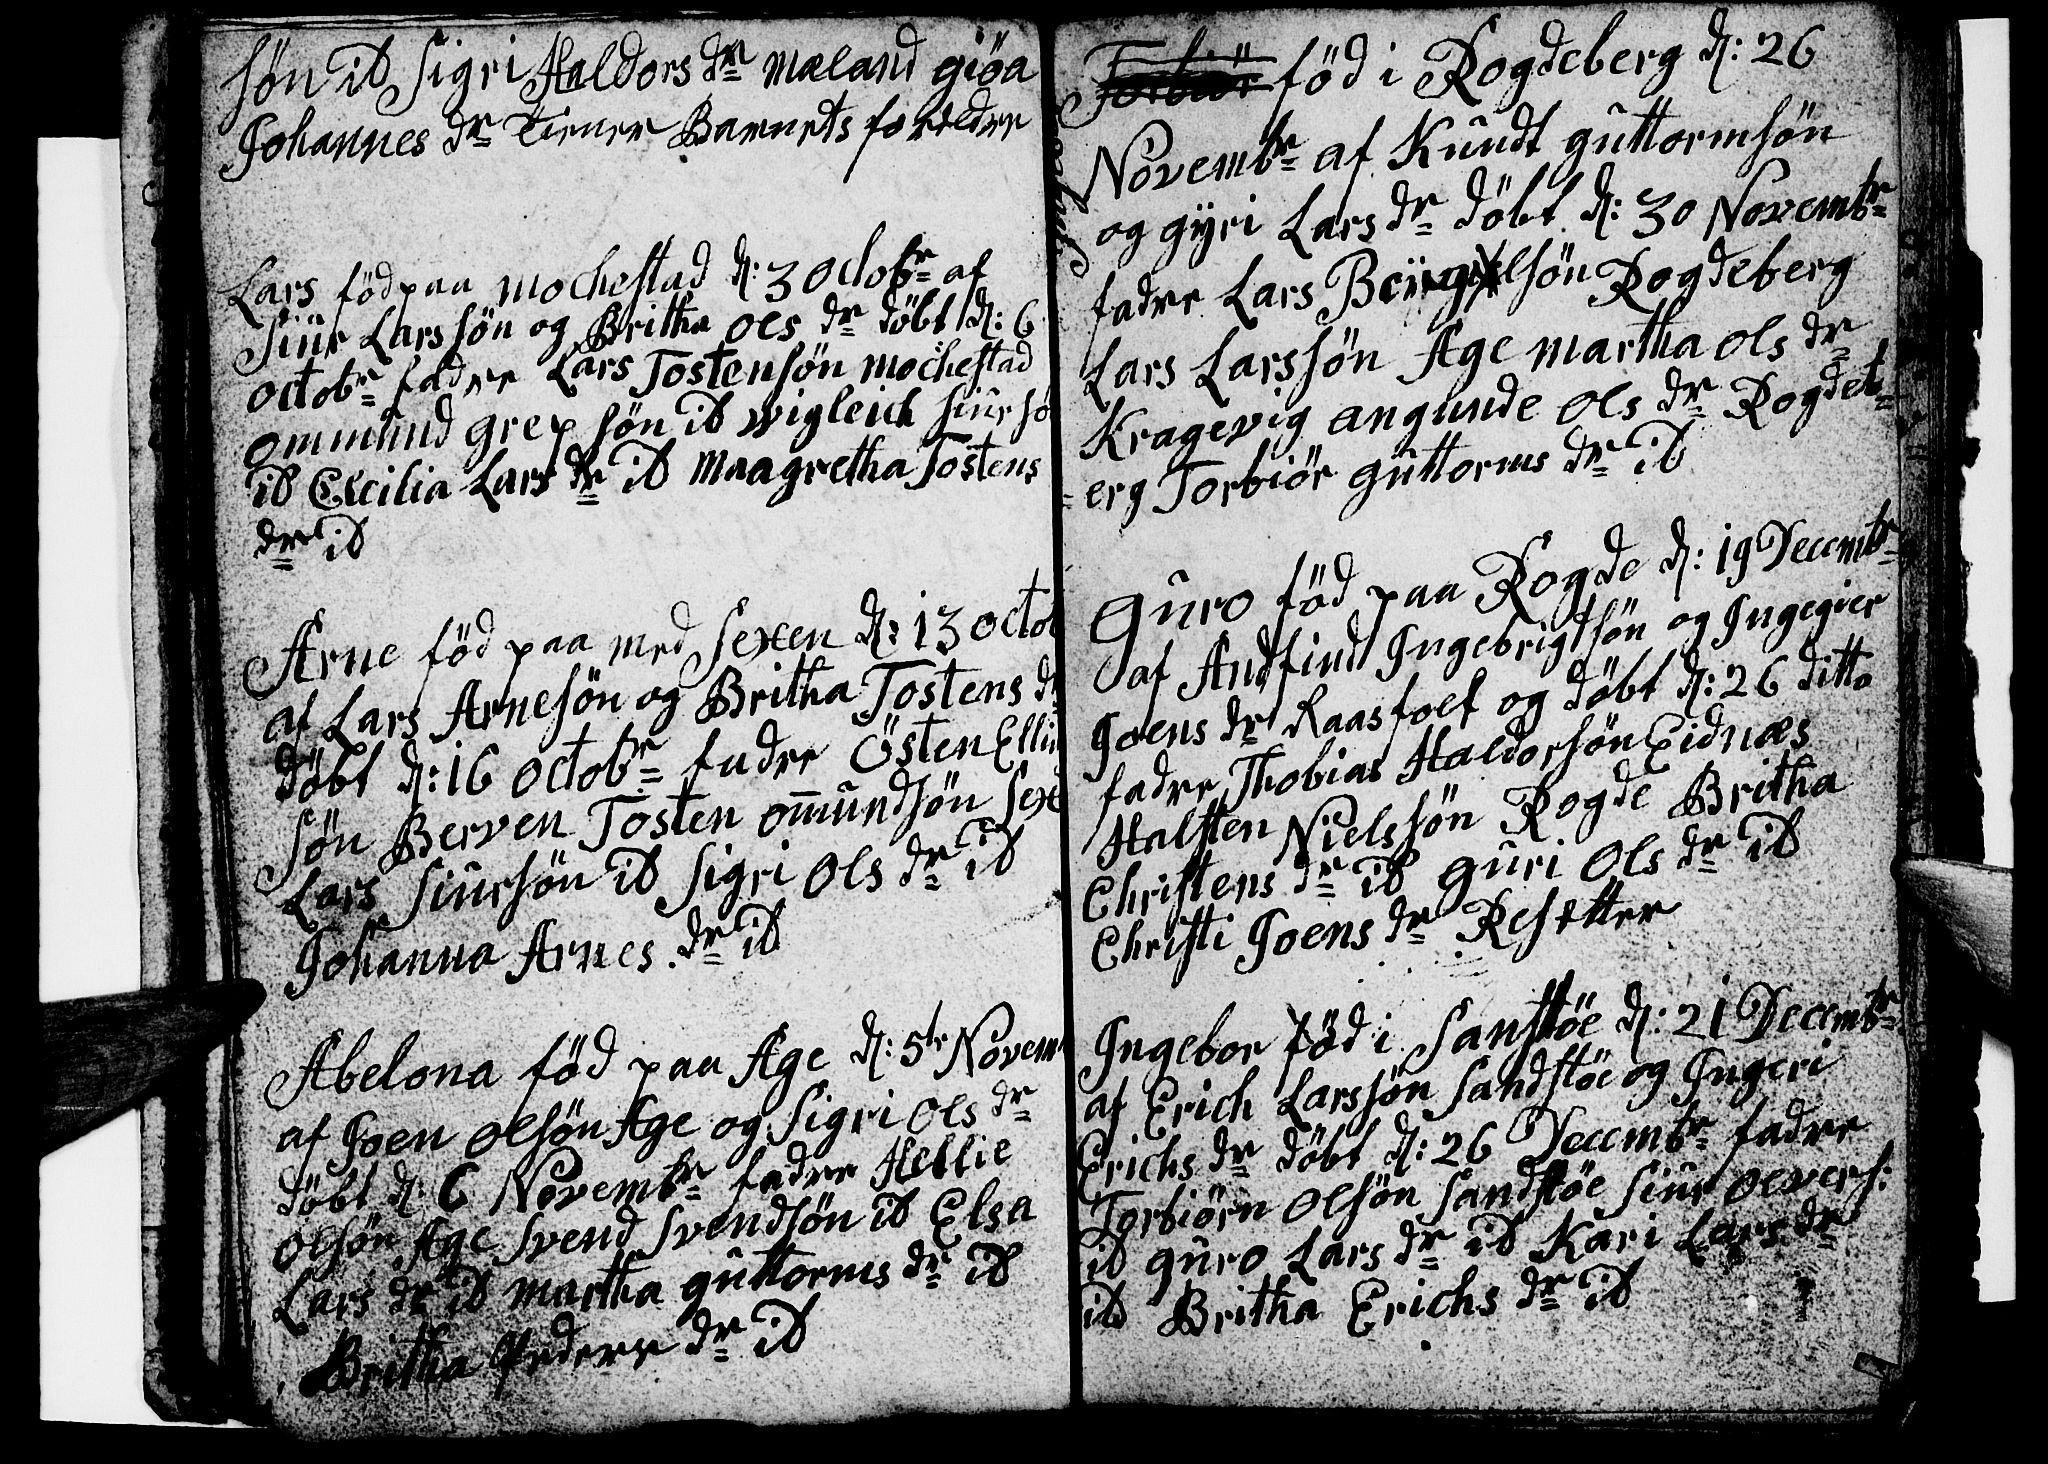 søn iƀ Sigri Haldors dr mæland giøa
Johannes dr tiener Barnets forældre
Lars fød paa mochestad d: 3 octobr af
Siur Larssøn og Britha ols dr døbt d: 6
octobr fadre Lars Tostensøn mochestad
ommund grepsøn iƀ wigleich siursø
iƀ Cecilia Lars dr iƀ maagretha Tostens
dr iƀ
Arne fød paa med Sexen d: 13 octob
af Lars Arnesøn og Britha Tostens dr
døbt d: 16 octobr fadre Østen Ellin
søn Berven Tosten om̄undsøn Sexe
Lars Siursøn iƀ Sigri ols dr iƀ
Johanna Arnes dr iƀ
Abelona fød paa Age d: 5te Novem
af Joen olsøn Age og Sigri ols dr
døbt d: 6 Novembr fadre Hellie
olsøn Age Svend Svendsøn iƀ Elsa
Lars dr iƀ martha guttorms dr iƀ
Britha Peders dr iƀ
Torbiør fød i Rogdeberg d: 26
Novembr af Knudt guttormsøn
og gÿri Lars dr døbt d: 30 Novembr
fadre Lars Rogdeberg
Lars Larssøn Age martha ols dr
Kragevig angunde ols dr Rogdeb=
erg Torbiør guttorms dr iƀ
guro fød paa Rogde d: 19 Decembr
af Andfind Ingebrigtsøn og Ingegier
Joens dr Raasfolf og døbt d: 26 ditto
fadre Thobias Haldorsøn Eidnæs
Halsten Nielssøn Rogde Britha
Christens dr iƀ guri ols dr iƀ
Christi Joens dr Resetter
Ingebor fød i Sanstøe d: 21 Decembr
af Erich Larssøn Sandstøe og Ingeri
Erichs dr døbt d: 26 Decembr fadre
Torbiørn olsøn Sandstøe Siur olvers:
iƀ guro Lars dr iƀ Kari Lars dr
iƀ Britha Erichs dr iƀ